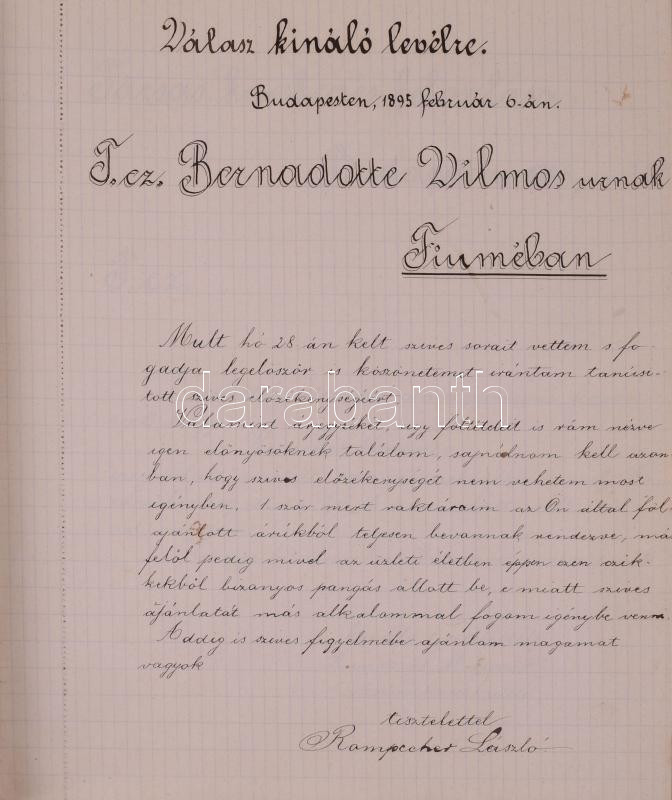 Válasz kináló levélre.
Budapesten, 1895 február 6-án.
T. cz. Bernadotte Vilmos urnak
Fiuméban
Mult hó 28 án kelt szives sorait vettem s fo-
gadja legelöször is köszönetemet irántam tanúsi-
tott szives előzékenységéért.
darabanth
Valamint árjegyzékét, ugy föltételeit is rám nézve
igen elönyösöknek találom, sajnálnom kell azon
ban, hogy szives előzékenységét nem vehetem most
igényben. 1 ször mert raktáraim az Ön által föl-
ajánlott árúkból teljesen bevannak rendezve, más
felöl pedig mivel az üzleti életben éppen ezen czik-
kekböl bizonyos pangás állott be, e miatt szives
ájánlatát más alkalommal fogom igénybe venni.
Addig is szives figyelmébe ajánlom magamat
vagyok
tisztelettel
László